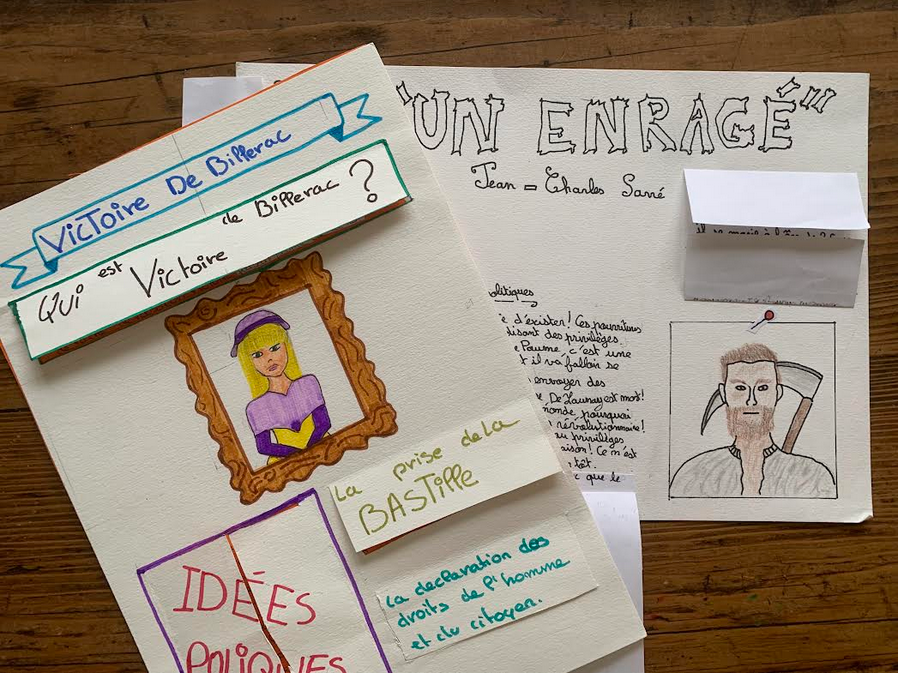 VICTOIRE DE Billerac
QUI est Victoire de Billerac ?
La prise de la
BASTille
La declaration des
droits de l'homme
et du citoyen.
IDÉES
POLIQUES
"UN ENRAGÉ"
Jean-Charles Sarré
olitiques
d'exister! Ces pourritures
disant des privilèges.
Paume, c'est une
t il va falloir se
envoyer des
De Launay est mort!
monde, pourquoi
révolutionnaire!
au privilèges
aison! Ce n'est
tôt.
c que le